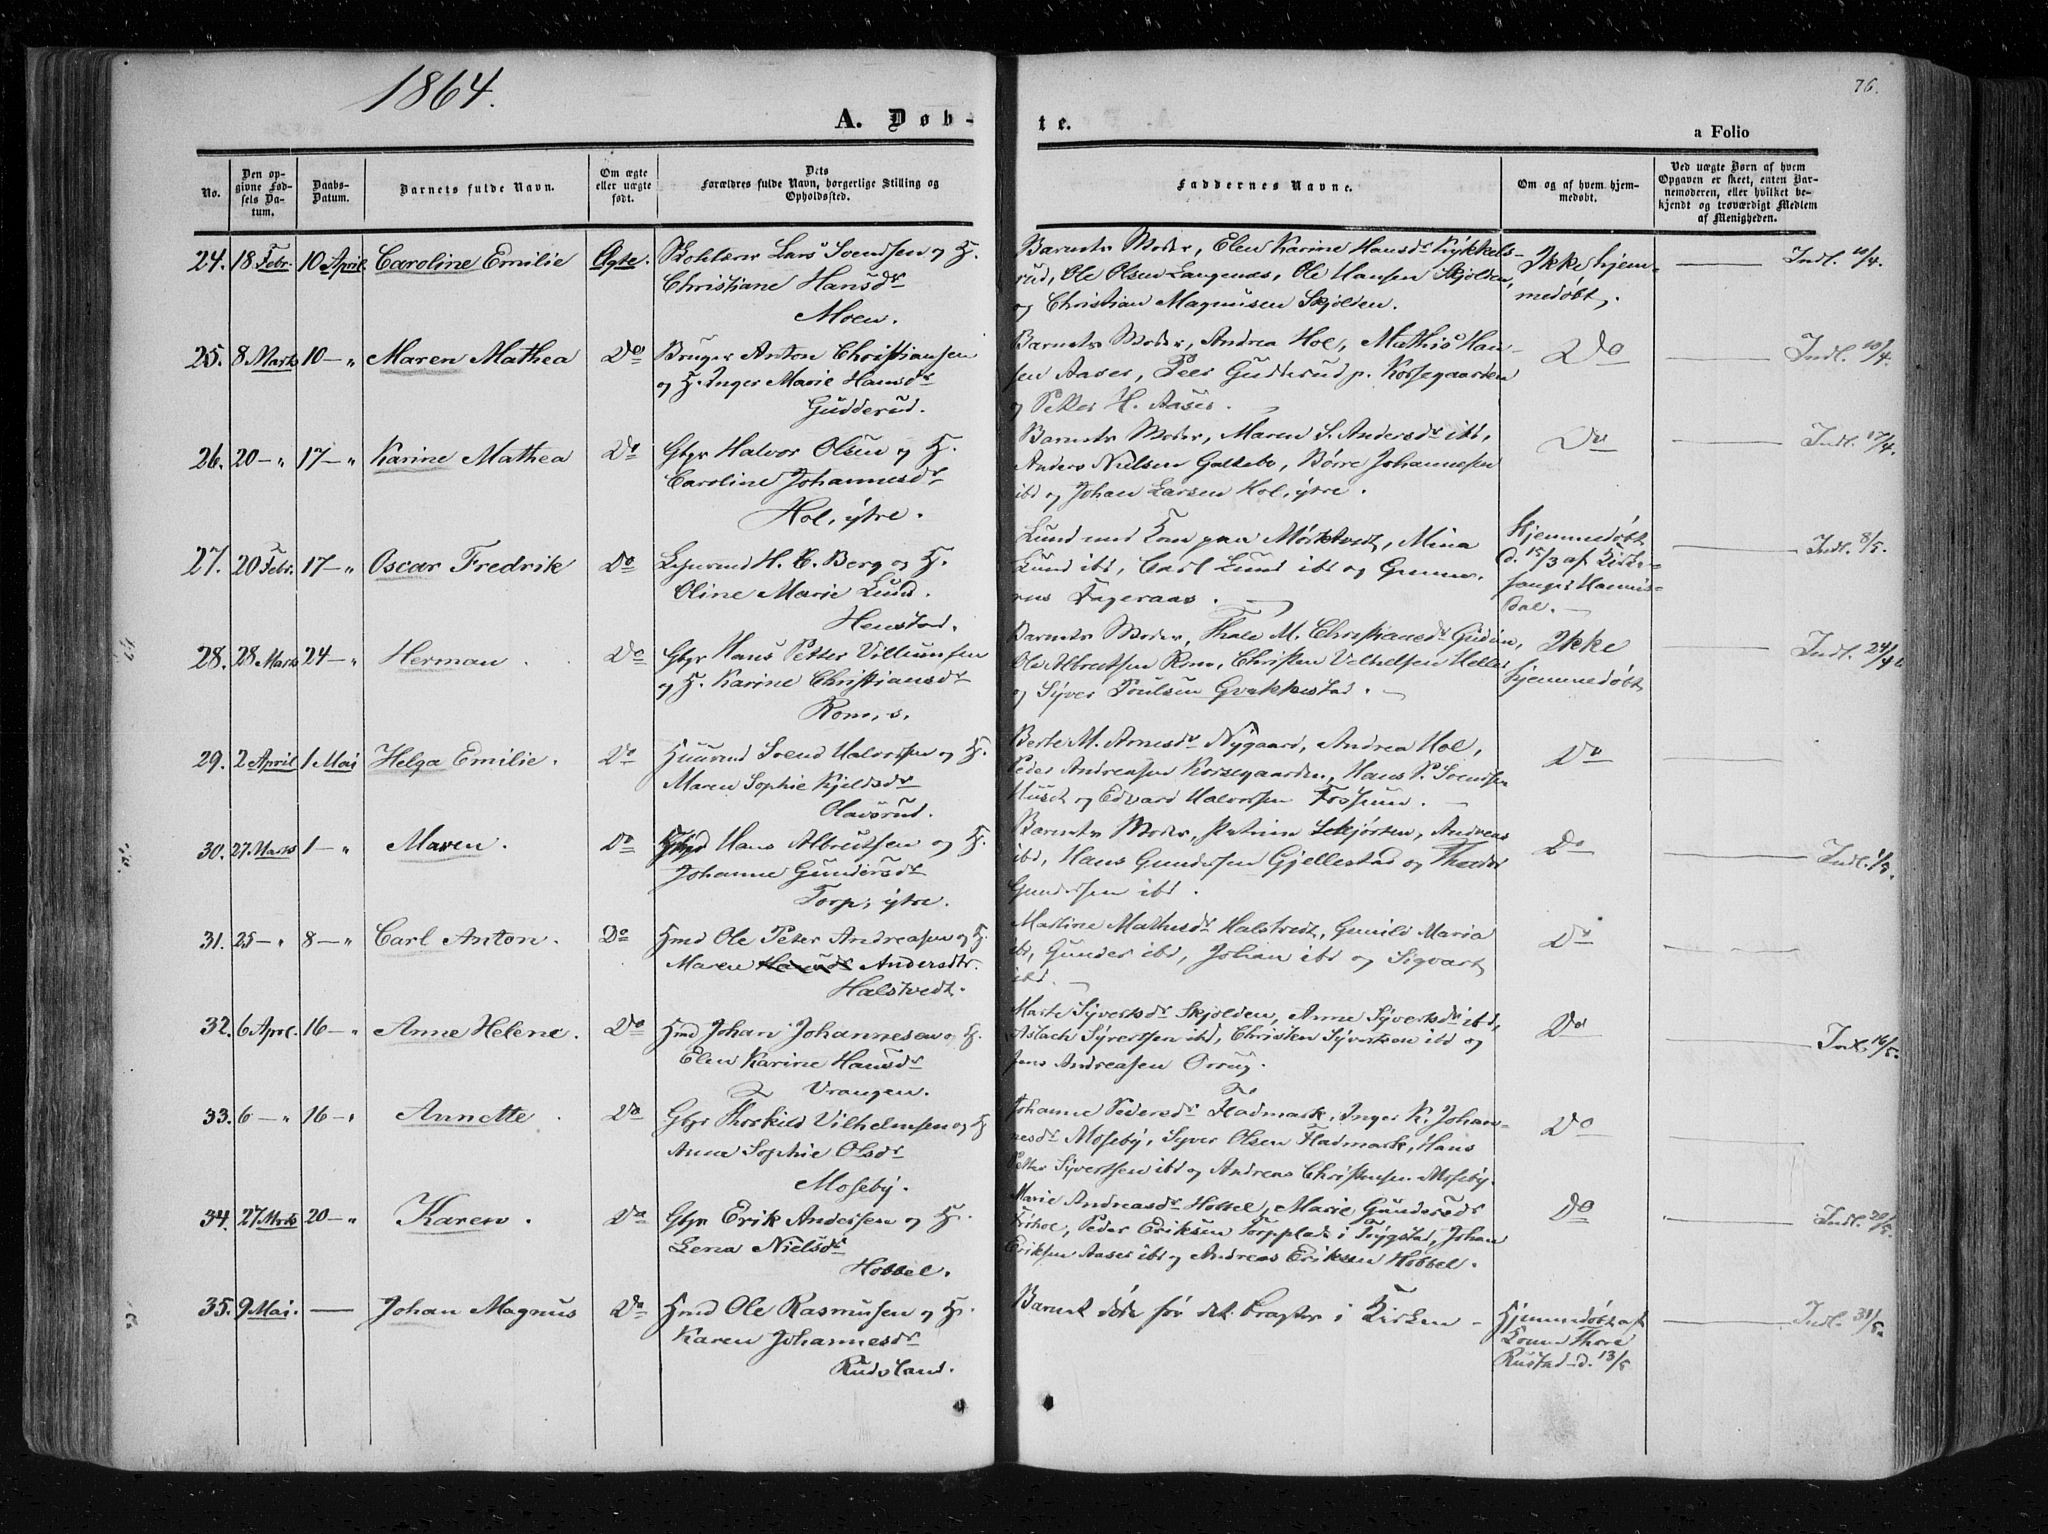 1864.
76.
A. Døb-
te.
a Folio
No.
Den op-
givne Fød-
sels Da-
tum.
Daabs-
Datum.
Barnets fulde Navn.
Om ægte
eller uægte
født.
Dets
Forældres fulde Navn, borgerlige Stilling og
Opholdssted.
Faddernes Navne.
Om og af hvem hjem-
medøbt.
Ved uægte Børn af hvem
Opgaven er skeet, enten Bar-
nemoderen, eller hvilket be-
kjendt og troværdigt Medlem
af Menigheden.
24. 18 Febr. 10 April Caroline Emilie Ægte. Lars Svendsen og H.
Christiane Hansdr
Moen.
Barnets Moder, Elen Karine Hansdr Kykkels-
rud, Ole Olsen Langenæs, Ole Hansen Skjolden,
og Christian Magnusen Skjolden.
Ikke hjem-
medøbt.
Indl. 10/4.
25. 8 Marts 10 — „ Maren Mathea Do Bruger Anton Christiansen
og H. Inger Marie Hansdr
Gudderud.
Barnets Moder, Andrea Hol, Mathis Han-
sen Aaser, Peer Gudderud p. Korsegaarden
og Petter H. Aaser.
Do
Indl. 10/4.
26. 20 — „ 17 — „ Karine Mathea Do Gbr Halvor Olsen og H.
Caroline Johannesdr
Hol, ytre.
Barnets Moder, Maren S. Andersdr ibd,
Anders Nielsen Galtebo, Børre Johannesen
ibd og Johan Larsen Hol, ytre.
Do
Indl. 17/4.
27. 20 Febr. 17 — „ Oscar Fredrik Do H. C. Berg og H.
Oline Marie Lund
Henstad.
Lund med Kone paa Mørktvedt, Mina
Lund ibd, Carl Lund ibd og Gunne-
rus Fageraas.
Hjemmedøbt
d. 15/3 af Kirke-
sanger
dal.
Indl. 8/5.
28. 28 Marts 24 — „ Herman Do Gbr Hans Petter Villumsen
og H. Karine Christiansdr
Rom, s.
Barnets Moder, Thale M. Christiansdr Gudim,
Ole Albretsen Rom, Christen
og Syver Poulsen Grakkestad.
Ikke
hjemmedøbt
Indl. 24/4
29. 2 April 1 Mai Helga Emilie. Do Svend Halvorsen og H.
Maren Sophie Kjeldsdr
Olavsrud.
Berte M. Arnesdr Nygaard, Andrea Hol,
Peder Andreasen Korsegaarden, Hans P. Svendsen
Huset og Edvard Halvorsen Fossum.
Do
30. 27 Marts 1 — „ Maren. Do Hans Albretsen og H.
Johanne Gundersdr
Torp, ytre.
Barnets Moder, Andreas
ibd, Hans Gundersen Gjellestad og
Gundersen ibd.
Do
Indl. 1/5.
31. 25 — „ 8 — „ Carl Anton. Do Hmd Ole Peter Andreasen og H.
Maren Hansdr Andersdtr.
Halstvedt.
Martine Mathisdr Halstvedt, Gunild Maria
ibd, Gunder ibd, Johan ibd og Sigvart
ibd.
Do
32. 6 Apr. 16 — „ Anne Helene. Do Hmd Johan Johannesen og H.
Elen Karine Hansdr
Vrangen.
Marte Syvertsdr Skjolden, Anne Syvertsdr ibd,
Aslach Syvertsen ibd, Christen Syvertsen ibd og
Jens Andreasen Orrug.
Do
Indl. 16/5.
33. 6 — „ 16 — „ Annette Do Gbr Thorkild Vilhelmsen og H
Anna Sophie Olsdr
Moseby.
Johanne Pedersdr Fladmark, Inger K. Johan-
nesdr Moseby, Syver Olsen Fladmark, Hans
Petter Syvertsen ibd og Andreas Christensen Moseby.
Do
34. 27 Mrts 20 — „ Karen. Do Gbr Erik Andersen og H.
Lena Nielsdr
Hobbel.
Marie Andreasdr Hobbel, Marie Gundersdr
Peder Eriksen Torpplads i Trygstad, Johan
Eriksen Aaser ibd og Andreas Eriksen Hobbel.
Do
Indl. 20/5.
35. 9 Mai. — Johan Magnus Do Hmd Ole Rasmussen og H.
Karen Johannesdr
Rudsland.
Barnet døde før det bragtes i Kirken —
Hjemmedøbt af
Kone Thore
Rustad d. 13/5
Indl. 31/5.